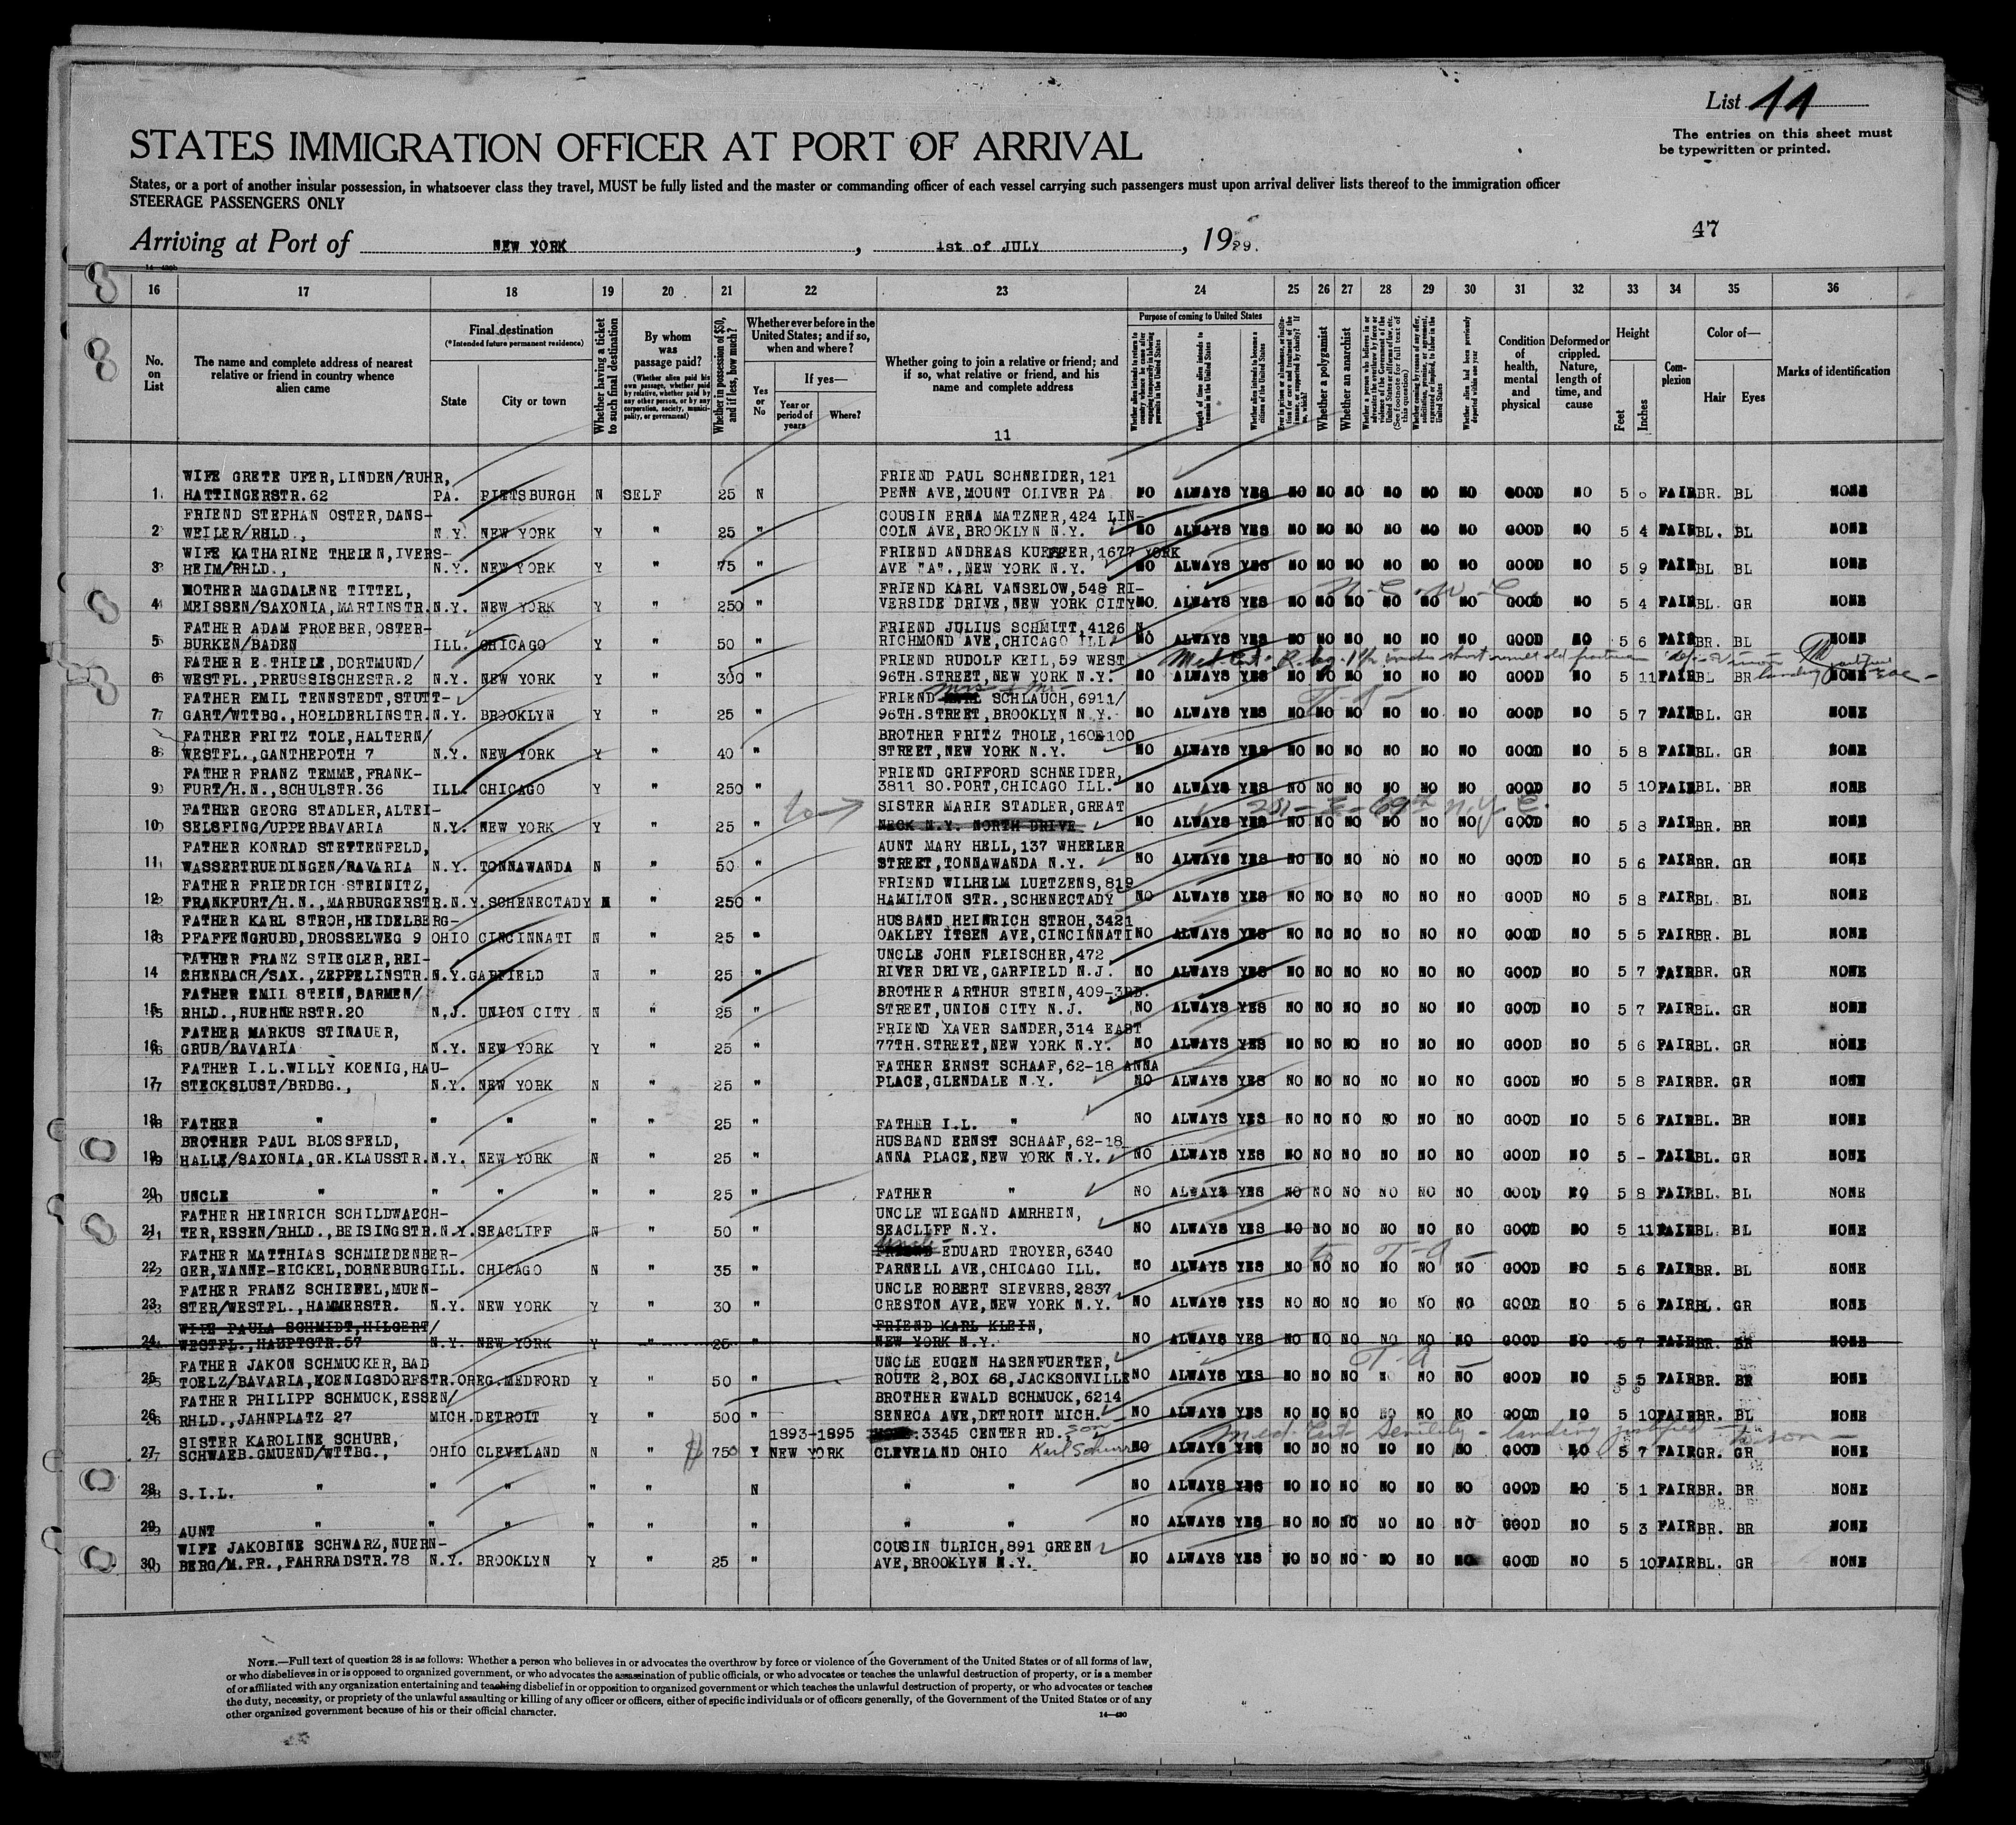 List 11
The entries on this sheet must
be typewritten or printed.
STATES IMMIGRATION OFFICER AT PORT OF ARRIVAL
States, or a port of another insular possession, in whatsoever class they travel, MUST be fully listed and the master or commanding officer of each vessel carrying such passengers must upon arrival deliver lists thereof to the immigration officer
STEERAGE PASSENGERS ONLY
47
Arriving at Port of NEW YORK, 1st of JULY, 1929.
16 17 18 19 20 21 22 23 24 25 26 27 28 29 30 31 32 33 34 35 36
No. on List
The name and complete address of nearest relative or friend in country whence alien came
Final destination
(*Intended future permanent residence)
State
City or town
Whether having a ticket to such final destination
By whom was passage paid?
(Whether alien paid his own passage, whether paid by relative, whether paid by any other person, or by any corporation, society, municipality, or government)
Whether in possession of $50, and if less, how much?
Whether ever before in the United States; and if so, when and where?
Yes or No
If yes—
Year or period of years
Where?
Whether going to join a relative or friend; and if so, what relative or friend, and his name and complete address
11
Purpose of coming to United States
Length of time alien intends to remain in the United States
Whether alien intends to become a citizen of the United States
Whether a polygamist
Whether an anarchist
Condition of health, mental and physical
Deformed or crippled. Nature, length of time, and cause
Height
Feet
Inches
Complexion
Color of—
Hair
Eyes
Marks of identification
WIFE GRETE UFER, LINDEN/RUHR, FRIEND PAUL SCHNEIDER, 121
1 HATTINGERSTR.62 PA. PITTSBURGH N SELF 25 N PENN AVE, MOUNT OLIVER PA NO ALWAYS YES NO NO NO NO NO NO GOOD NO 5 6 FAIR BR. BL NONE
FRIEND STEPHAN OSTER, DANS- COUSIN ERNA MATZNER, 424 LIN-
2 WEILER/RHLD., N.Y. NEW YORK Y " 25 " COLN AVE, BROOKLYN N.Y. NO ALWAYS YES NO NO NO NO NO NO GOOD NO 5 4 FAIR BL. BL NONE
WIFE KATHARINE THEIEN, IVERS- FRIEND ANDREAS KUEFFER, 1677 YORK
3 HEIM/RHLD., N.Y. NEW YORK Y " 75 " AVE "A"., NEW YORK N.Y. NO ALWAYS YES NO NO NO NO NO NO GOOD NO 5 9 FAIR BL BL NONE
MOTHER MAGDALENE TITTEL, FRIEND KARL VANSELOW, 548 RI-
4 MEISSEN/SAXONIA, MARTINSTR. N.Y. NEW YORK Y " 250 " VERSIDE DRIVE, NEW YORK CITY NO. ALWAYS YES NO NO NO NO NO NO GOOD NO 5 4 FAIR BL. GR NONE
FATHER ADAM FROEBER, OSTER- FRIEND JULIUS SCHMITT, 4126 N
5 BURKEN/BADEN ILL. CHICAGO Y " 50 " RICHMOND AVE, CHICAGO ILL NO ALWAYS YES NO NO NO NO NO NO GOOD NO 5 6 FAIR BR. BL NONE
FATHER E.THIELE, DORTMUND/ FRIEND RUDOLF KEIL, 59 WEST
6 WESTFL., PREUSSISCHESTR.2 N.Y. NEW YORK Y " 300 " 96TH.STREET, NEW YORK N.Y. NO ALWAYS YES NO NO NO NO NO NO GOOD NO 5 11 FAIR BL BR NONE
FATHER EMIL TENNSTEDT, STUTT- Mrs & Mr FRIEND SCHLAUCH, 6911/
7 GART/WTTBG., HOELDERLINSTR. N.Y. BROOKLYN Y " 25 " 96TH.STREET, BROOKLYN N.Y. NO ALWAYS YES NO NO NO NO NO NO GOOD NO 5 7 FAIR BL. GR NONE
FATHER FRITZ TOLE, HALTERN/ BROTHER FRITZ THOLE, 160E100
8 WESTFL., GANTHEPOTH 7 N.Y. NEW YORK Y " 40 " STREET, NEW YORK N.Y. NO ALWAYS YES NO NO NO NO NO NO GOOD NO 5 8 FAIR BL. GR NONE
FATHER FRANZ TEMME, FRANK- FRIEND GRIFFORD SCHNEIDER,
9 FURT/H.N., SCHULSTR.36 ILL. CHICAGO Y " 250 " 3811 SO.PORT, CHICAGO ILL. NO ALWAYS YES NO NO NO NO NO NO GOOD NO 5 10 FAIR BL. BR NONE
FATHER GEORG STADLER, ALTEI- to SISTER MARIE STADLER, GREAT 231-E-69th N.Y.C.
10 SELSFING/UPPERBAVARIA N.Y. NEW YORK Y " 25 " NECK N.Y. NORTH DRIVE NO ALWAYS YES NO NO NO NO NO NO GOOD NO 5 8 FAIR BR. BR NONE
FATHER KONRAD STETTENFELD, AUNT MARY HELL, 137 WHEELER
11 WASSERTRUEDINGEN/BAVARIA N.Y. TONNAWANDA N " 50 " STREET, TONNAWANDA N.Y. NO ALWAYS YES NO NO NO NO NO NO GOOD NO 5 6 FAIR BR. GR NONE
FATHER FRIEDRICH STEINITZ, FRIEND WILHELM LUETZENS, 819
12 FRANKFURT/H.N., MARBURGERSTR. N.Y. SCHENECTADY N " 250 " HAMILTON STR., SCHENECTADY NO ALWAYS YES NO NO NO NO NO NO GOOD NO 5 8 FAIR BL BL NONE
FATHER KARL STROH, HEIDELBERG- HUSBAND HEINRICH STROH, 3421
13 PFAFFENGRUBD, DROSSELWEG 9 OHIO CINCINNATI N " 25 " OAKLEY ITSEN AVE, CINCINNATI NO ALWAYS YES NO NO NO NO NO NO GOOD NO 5 5 FAIR BR. BL NONE
FATHER FRANZ STIEGLER, REI- UNCLE JOHN FLEISCHER, 472
14 CHENBACH/SAX., ZEPPELINSTR. N.Y. GARFIELD N " 25 " RIVER DRIVE, GARFIELD N.J. NO ALWAYS YES NO NO NO NO NO NO GOOD NO 5 7 FAIR BR. GR NONE
FATHER EMIL STEIN, BARMEN/ BROTHER ARTHUR STEIN, 409-3RD.
15 RHLD., HUEHNERSTR.20 N.J. UNION CITY N " 25 " STREET, UNION CITY N.J. NO ALWAYS YES NO NO NO NO NO NO GOOD NO 5 7 FAIR BL. GR NONE
FATHER MARKUS STINAUER, FRIEND XAVER SANDER, 314 EAST
16 GRUB/BAVARIA N.Y. NEW YORK Y " 25 " 77TH.STREET, NEW YORK N.Y. NO ALWAYS YES NO NO NO NO NO NO GOOD NO 5 6 FAIR BL. GR NONE
FATHER I.L.WILLY KOENIG, HAU- FATHER ERNST SCHAAF, 62-18 ANNA
17 STECKSLUST/BRDBG., N.Y. NEW YORK N " 25 " PLACE, GLENDALE N.Y. NO ALWAYS YES NO NO NO NO NO NO GOOD NO 5 8 FAIR BR. GR NONE
18 FATHER " " " " " 25 " FATHER I.L. " NO ALWAYS YES NO NO NO NO NO NO GOOD NO 5 6 FAIR BL. BR NONE
BROTHER PAUL BLOSSFELD, HUSBAND ERNST SCHAAF, 62-18
19 HALLE/SAXONIA, GR.KLAUSSTR. N.Y. NEW YORK N " 25 " ANNA PLACE, NEW YORK N.Y. NO ALWAYS YES NO NO NO NO NO NO GOOD NO 5 - FAIR BL. GR NONE
20 UNCLE " " " " " 25 " FATHER " NO ALWAYS YES NO NO NO NO NO NO GOOD NO 5 8 FAIR BL. BL NONE
FATHER HEINRICH SCHILDWAECH- UNCLE WIEGAND AMRHEIN,
21 TER, ESSEN/RHLD., BEISINGSTR. N.Y. SEACLIFF N " 50 " SEACLIFF N.Y. NO ALWAYS YES NO NO NO NO NO NO GOOD NO 5 11 FAIR BL. BL NONE
FATHER MATTHIAS SCHMIEDENBER- Uncle FRIEND EDUARD TROYER, 6340
22 GER, WANNE-EICKEL, DORNEBURG ILL. CHICAGO N " 35 " PARNELL AVE, CHICAGO ILL. NO ALWAYS YES NO NO NO NO NO NO GOOD NO 5 6 FAIR BR. BL NONE
FATHER FRANZ SCHIEFEL, MUEN- UNCLE ROBERT SIEVERS, 2837
23 STER/WESTFL., HAMMERSTR. N.Y. NEW YORK Y " 30 " CRESTON AVE, NEW YORK N.Y. NO ALWAYS YES NO NO NO NO NO NO GOOD NO 5 6 FAIR BL. GR NONE
WIFE PAULA SCHMIDT, HILGERT/ FRIEND KARL KLEIN,
24 WESTFL., HAUPTSTR.57 N.Y. NEW YORK Y " 25 " NEW YORK N.Y. NO ALWAYS YES NO NO NO NO NO NO GOOD NO 5 7 FAIR BR. BR NONE
FATHER JAKON SCHMUCKER, BAD UNCLE EUGEN HASENFUERTER,
25 TOELZ/BAVARIA, KOENIGSDORFSTR. OREG. MEDFORD Y " 50 " ROUTE 2, BOX 68, JACKSONVILLE NO ALWAYS YES NO NO NO NO NO NO GOOD NO 5 5 FAIR BR. BR NONE
FATHER PHILIPP SCHMUCK, ESSEN/ BROTHER EWALD SCHMUCK, 6214
26 RHLD., JAHNPLATZ 27 MICH. DETROIT Y " 500 " SENECA AVE, DETROIT MICH. NO ALWAYS YES NO NO NO NO NO NO GOOD NO 5 10 FAIR BR. BL NONE
SISTER KAROLINE SCHURR, 1893-1895 3345 CENTER RD. son Med Cert Senility - landing justified
27 SCHWAEB.GMUEND/WTTBG., OHIO CLEVELAND N " 750 Y NEW YORK CLEVELAND OHIO Karl Schurr NO ALWAYS YES NO NO NO NO NO NO GOOD NO 5 7 FAIR GR. GR NONE
28 S.I.L. " " " " " N " " NO ALWAYS YES NO NO NO NO NO NO GOOD NO 5 1 FAIR BR. BR NONE
29 AUNT " " " " " " " " NO ALWAYS YES NO NO NO NO NO NO GOOD NO 5 3 FAIR BR. BR NONE
WIFE JAKOBINE SCHWARZ, NUERN- COUSIN ULRICH, 891 GREEN
30 BERG/M.FR., FAHRRADSTR.78 N.Y. BROOKLYN Y " 25 " AVE, BROOKLYN N.Y. NO ALWAYS YES NO NO NO NO NO NO GOOD NO 5 10 FAIR BL. GR NONE
NOTE.—Full text of question 28 is as follows: Whether a person who believes in or advocates the overthrow by force or violence of the Government of the United States or of all forms of law,
or who disbelieves in or is opposed to organized government, or who advocates the assassination of public officials, or who advocates or teaches the unlawful destruction of property, or is a member
of or affiliated with any organization entertaining and teaching disbelief in or opposition to organized government or which teaches the unlawful destruction of property, or who advocates or teaches
the duty, necessity, or propriety of the unlawful assaulting or killing of any officer or officers, either of specific individuals or of officers generally, of the Government of the United States or of any
other organized government because of his or their official character.
14—430